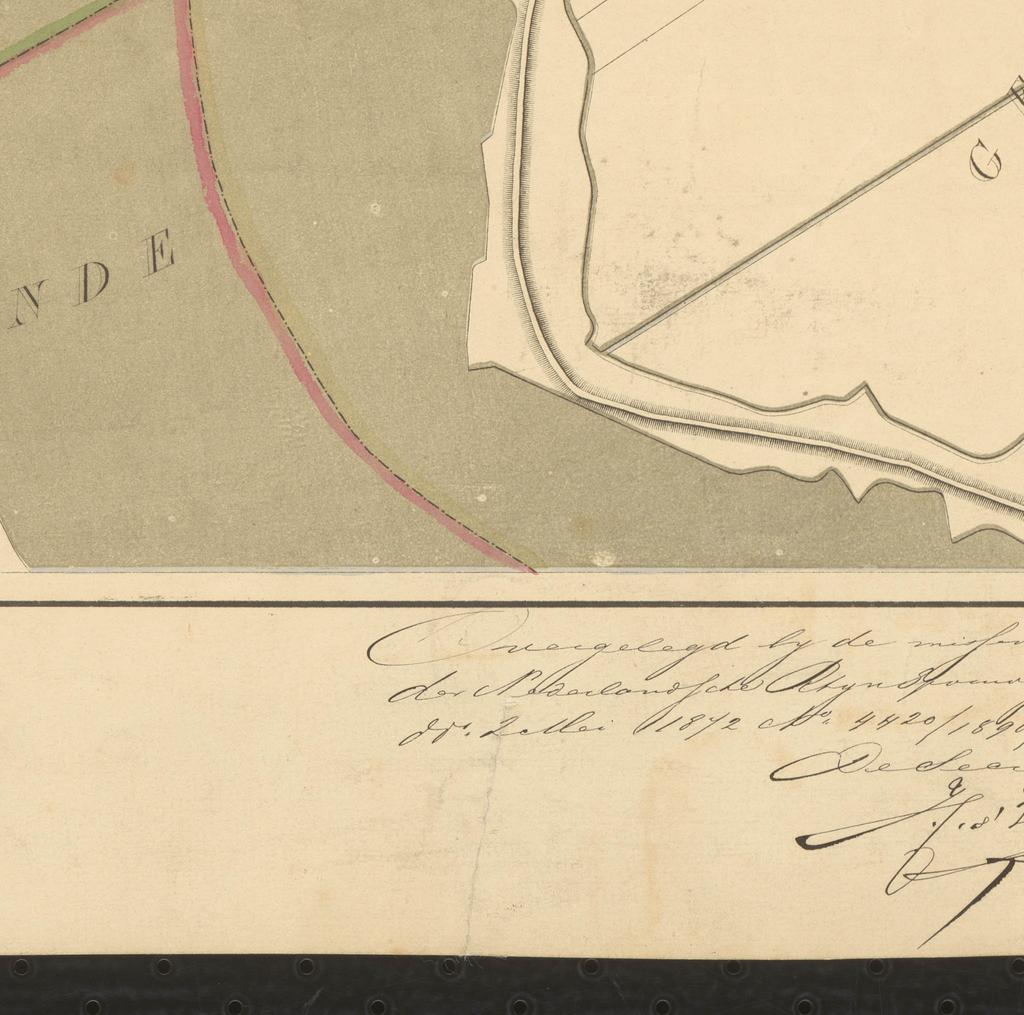 N D E
G
Overgelegd by de
der Nederlandsche Rhynspoorw
dd. 2 Mei 1872 No. 4420/189
De Sec